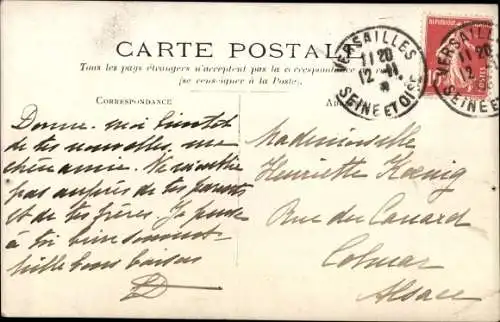 CARTE POSTALE
Tous les pays étrangers n'acceptent pas la correspondance au recto
(se renseigner à la Poste).
CORRESPONDANCE
VERSAILLES
11 20
12 - 11
SEINE ET OISE
VERSAILLES
11 20
12
SEINE ET OISE
POSTES
Donne-moi bientôt
de tes nouvelles, ma
chère amie. Ne m'oublie
pas auprès de tes parents
et de tes frères. Je pense
à toi bien souvent
mille bons baisers
Mademoiselle
Henriette Kœnig
Rue du Canard
Colmar
Alsace